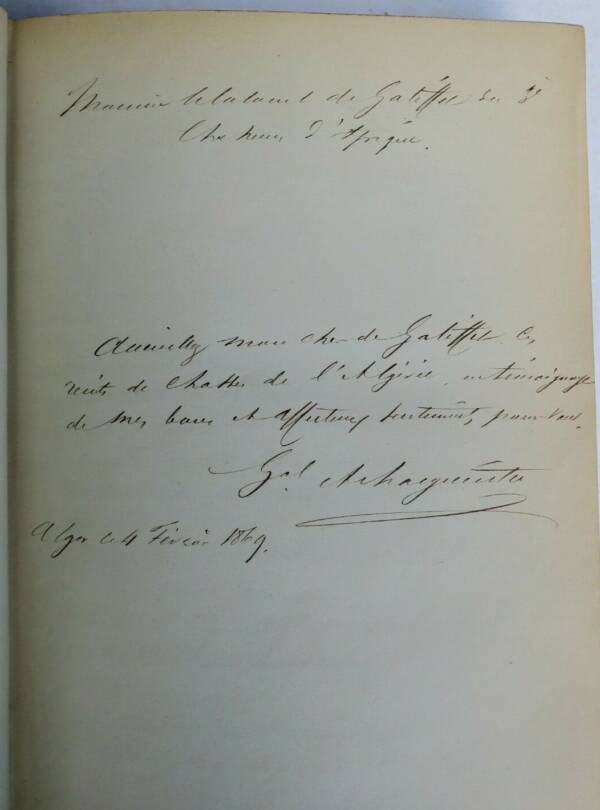 Monsieur le Colonel de Galiffet du 3e
Chasseurs d'Afrique.
Accueillez mon cher de Galiffet ces
récits de chasses de l'Algérie en témoignage
de mes bons et affectueux sentiments pour vous.
Gal A Margueritte
Alger le 4 Février 1869.